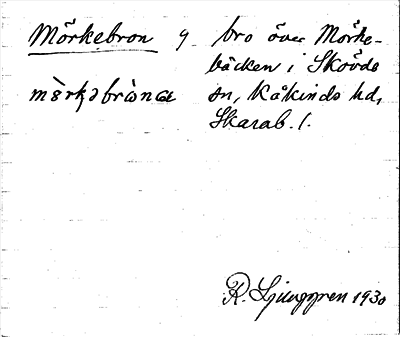 Mörkebron
bro över Mörke-
bäcken i Skövde
sn, Kåkinds hd,
Skarab. l.
R. Ljunggren 1930